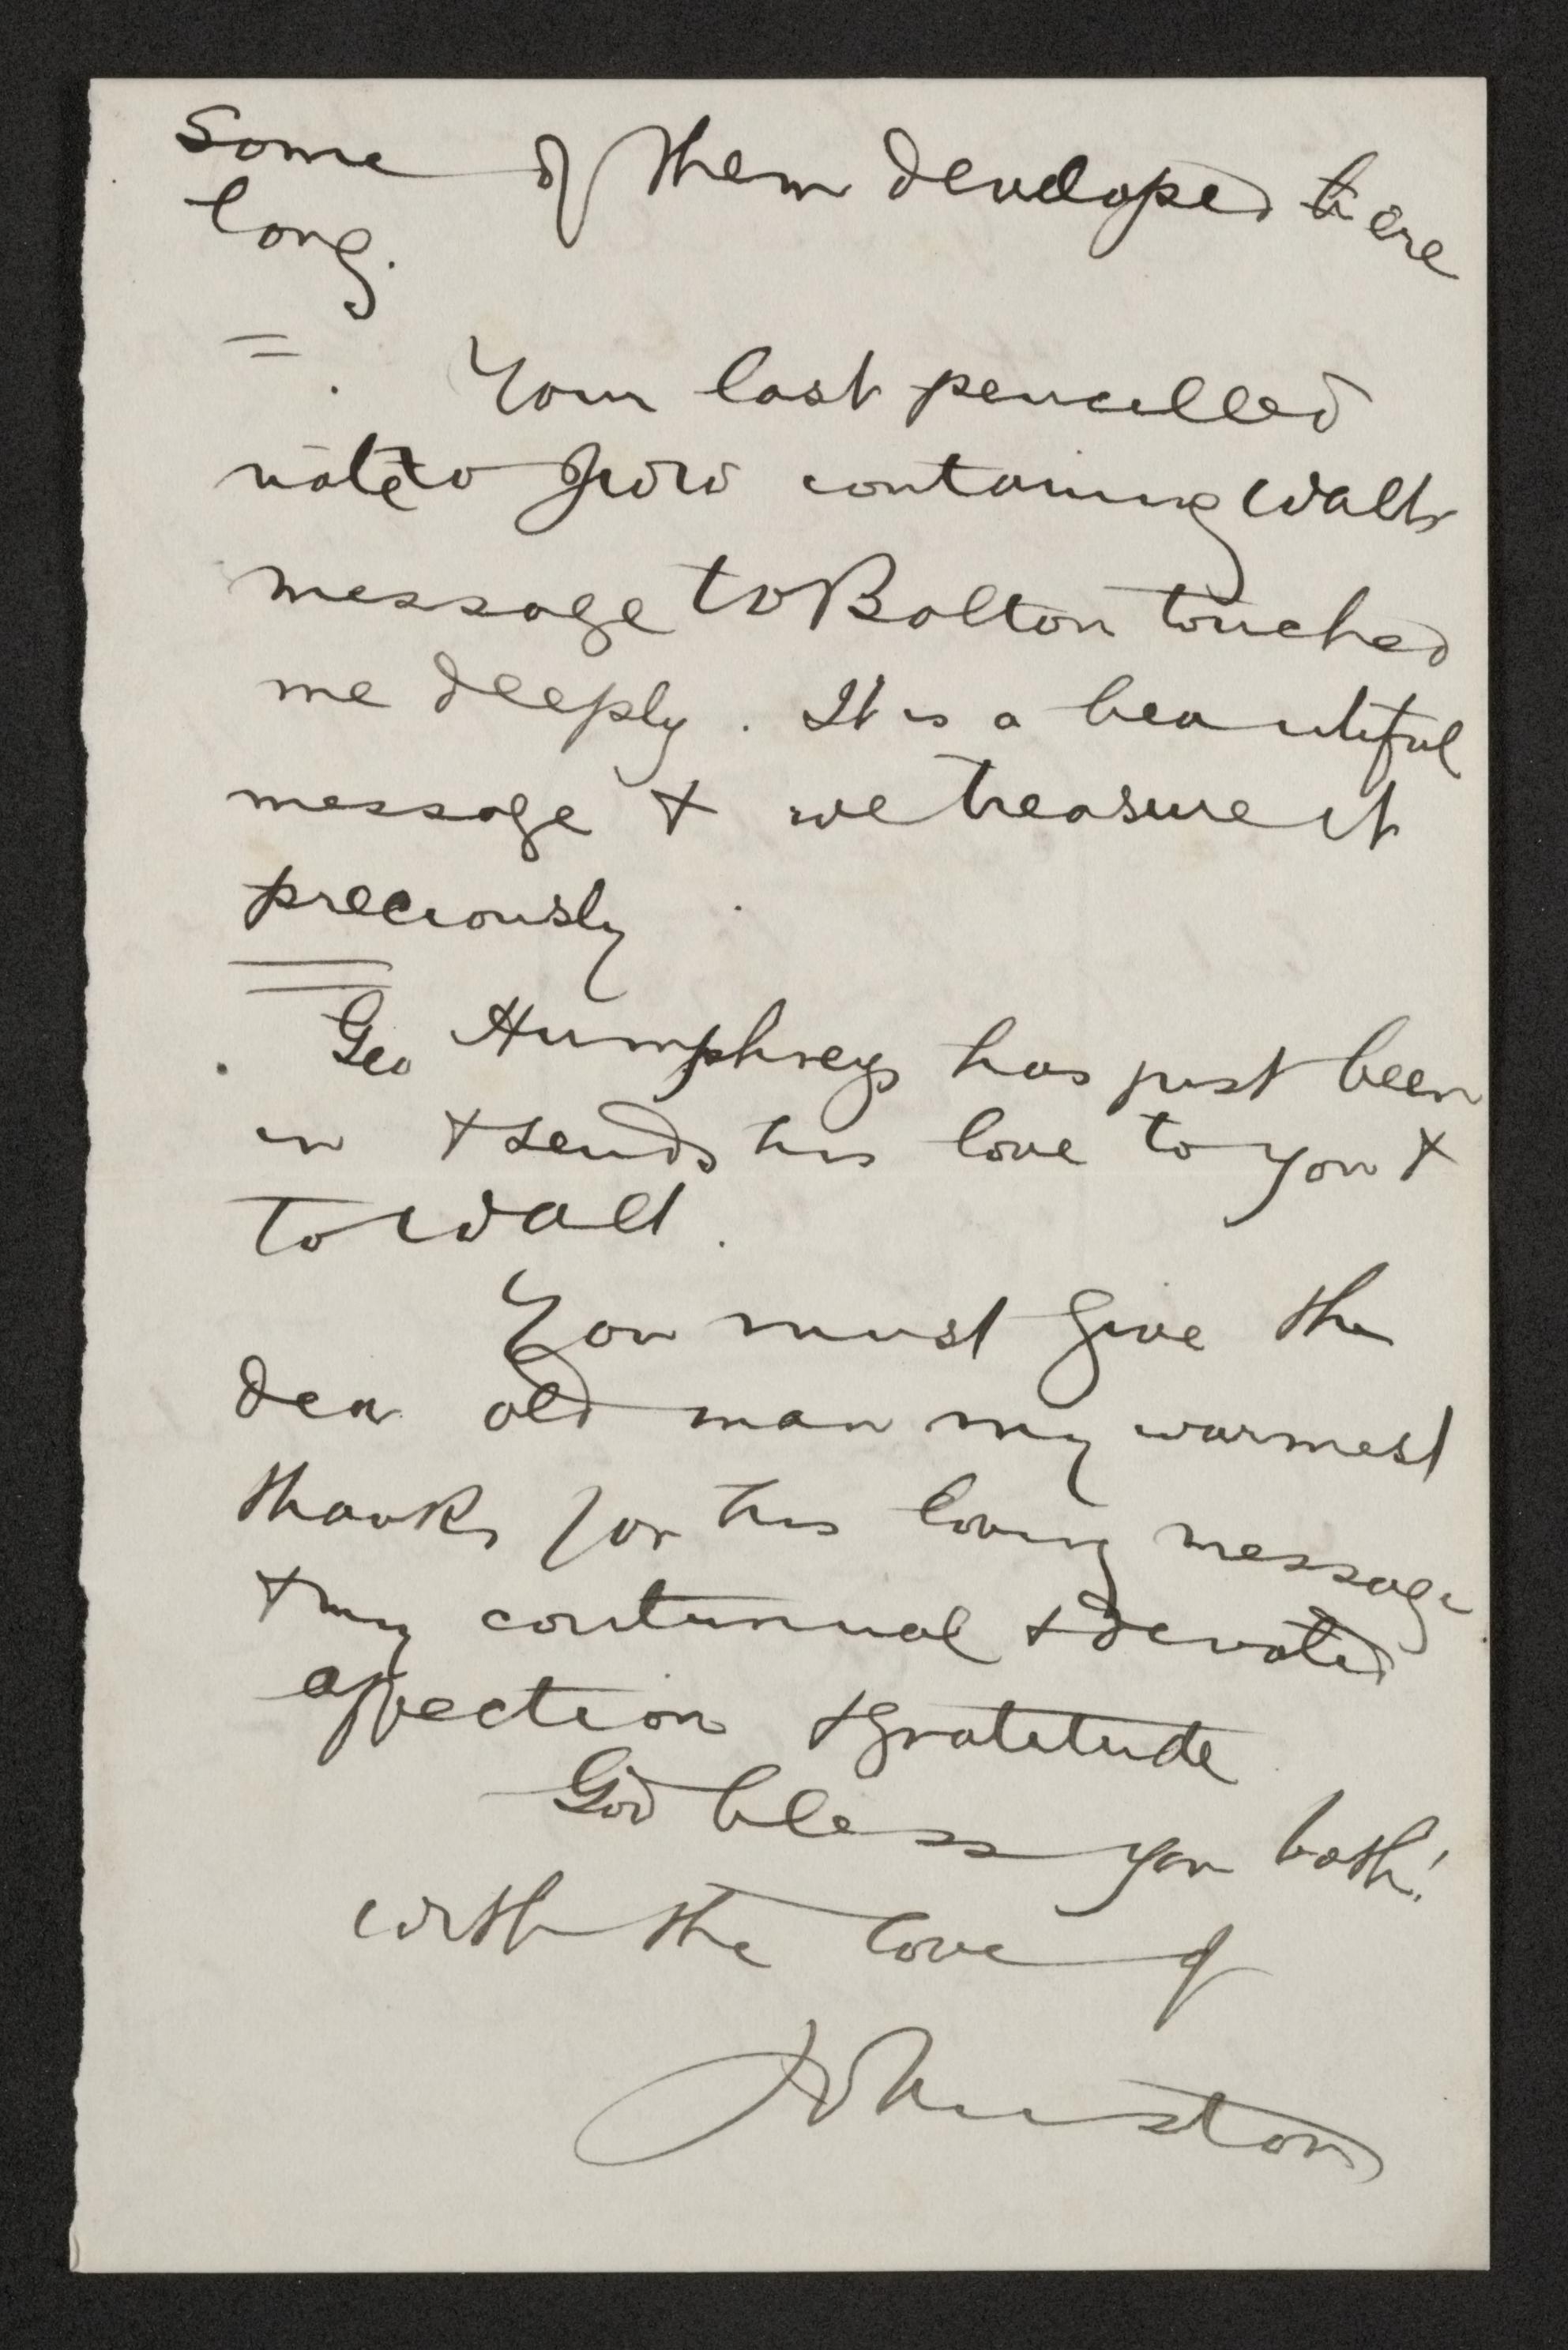 Some of them developed ere
long.
Your last pencilled
note to JWW containing Walt's
message to Bolton touched
me deeply. It is a beautiful
message & we treasure it
preciously
Geo Humphreys has just been
in & sends his love to you &
to Walt.
You must give the
dear old man my warmest
thanks for his loving message
& my continual & devoted
affection & gratitude
God bless you both!
with the love of
JJohnston